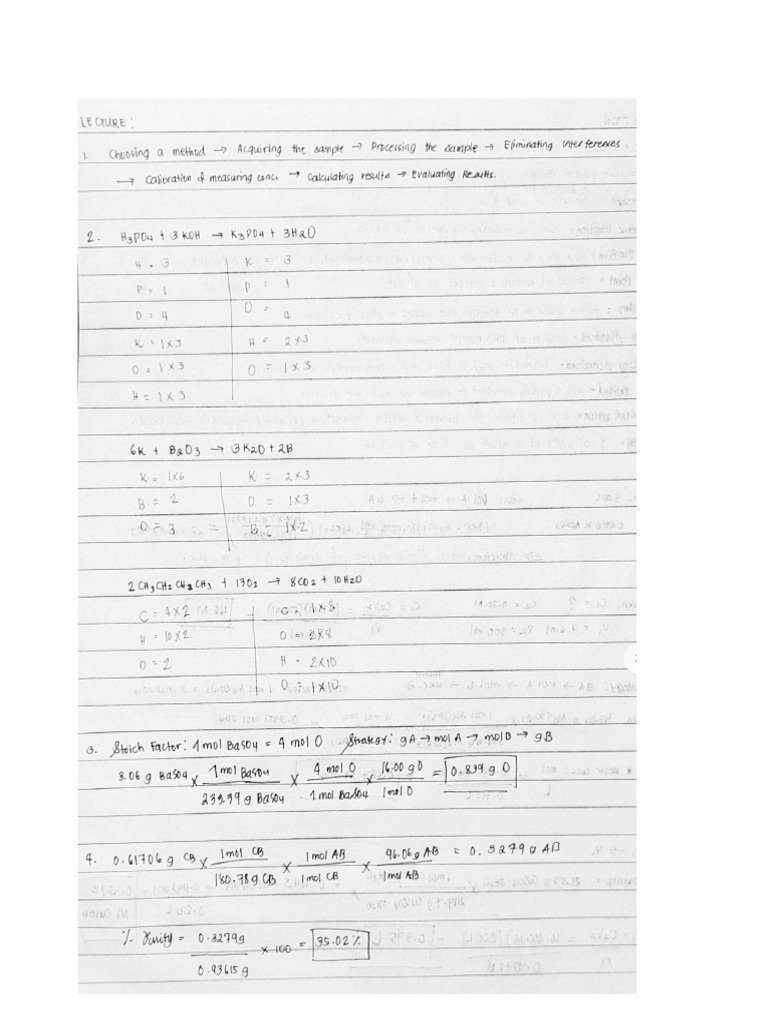 LECTURE:
1. Choosing a method → Acquiring the sample → Processing the sample → Eliminating Interferences
→ Calibration & measuring conc. → Calculating results → Evaluating Results.
2. H3PO4 + 3 KOH → K3PO4 + 3H2O
H = 3 K = 3
P = 1 P = 1
O = 4 O = 4
K = 1x3 H = 2x3
O = 1x3 O = 1x3
H = 1x3
6K + B2O3 → 3K2O + 2B
K = 1x6 K = 2x3
B = 2 O = 1x3
O = 3 = B = 1x2
2 CH3CH2CH2CH3 + 13O2 → 8CO2 + 10H2O
C = 4x2 C = 1x8
H = 10x2 O = 2x8
O = 2 H = 2x10
O = 1x10
3. Stoich Factor: 1 mol BaSO4 = 4 mol O Strategy: gA → mol A → mol B → gB
3.06 g BaSO4 x 1 mol BaSO4 x 4 mol O x 16.00 g O = 0.839 g O
233.39 g BaSO4 1 mol BaSO4 1 mol O
4. 0.61706 g CB x 1 mol CB x 1 mol AB x 96.06 g AB = 0.3279 g AB
180.78 g CB 1 mol CB 1 mol AB
% Purity = 0.3279g x 100 = 35.02 %
0.93615 g